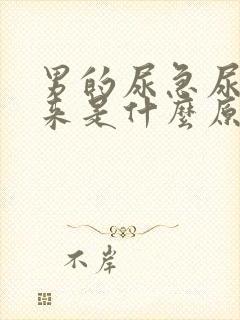 男的尿急尿
来是什麼原
不岸